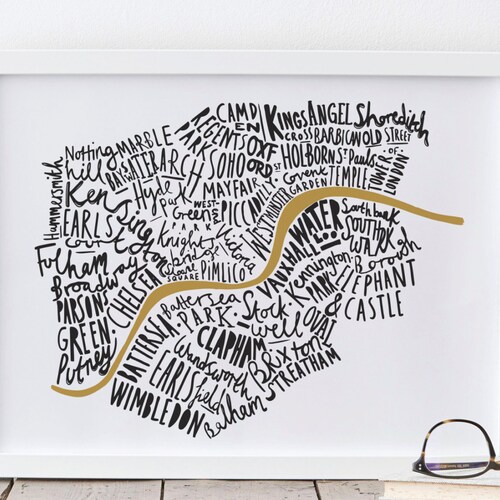 Hammersmith
Notting
hill
MARBLE
ARCH
BAYSWATER
Hyde
park
REGENTS
PARK
CAMDEN
SOHO
OXFORD
ST
KINGS
CROSS
ANGEL
Shoreditch
BARBICAN
OLD STREET
HOLBORN
St Pauls
Covent
GARDEN
TEMPLE
TOWER OF
LONDON
MAYFAIR
PICCADILLY
WESTMINSTER
Green
PARK
Kensington
EARLS
Court
Knights
bridge
Sloane
SQUARE
Victoria
PIMLICO
Fulham
Broadway
PARSONS
GREEN
Putney
CHELSEA
BATTERSEA
Battersea
PARK
Stock
well
VAUXHALL
WATER
LOO
South bank
SOUTH
WARK
Borough
ELEPHANT
&
CASTLE
Kennington
PARK
OVAL
CLAPHAM
Brixton
STREATHAM
Wandsworth
EARLS
field
Balham
WIMBLEDON